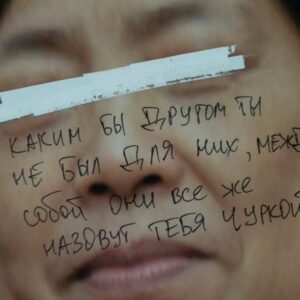 КАКИМ БЫ ДРУГОМ ТЫ
НЕ БЫЛ ДЛЯ НИХ, МЕЖД
СОБОЙ ОНИ ВСЕ ЖЕ
НАЗОВУТ ТЕБЯ ЧУРКОЙ